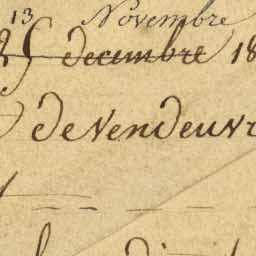 13 Novembre
25 decembre 18
de Vendeuvr